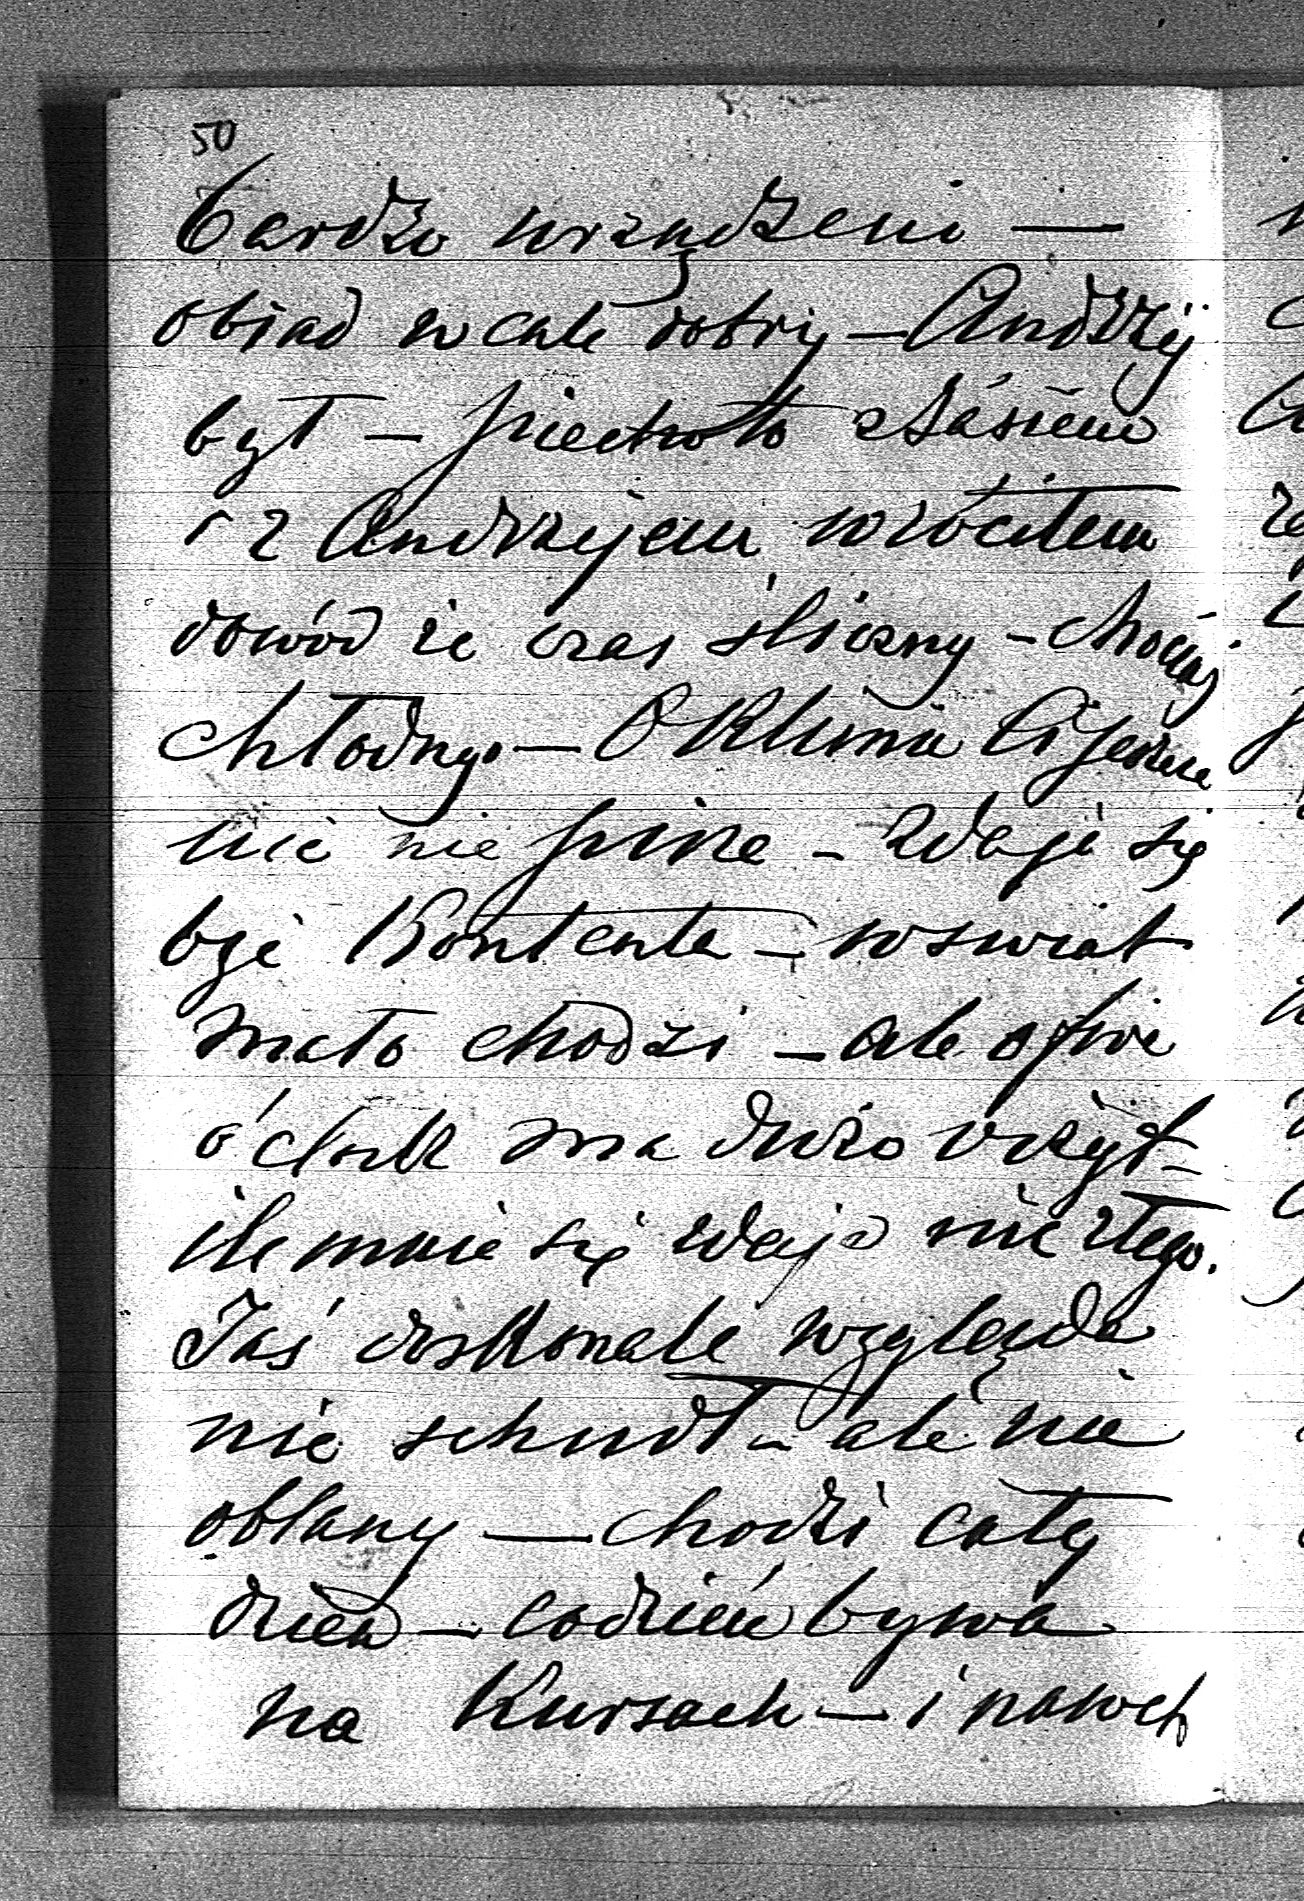 50
bardzo urządzeni —
obiad wcale dobry — Andrzej
był — piechotą z Jásiem
i z Andrzejem wróciłem
dowód że czas śliczny — chociaż
chłodny. — O Klimci Ci jeszcze
nic nie piszę — zdaje się
być Kontenta — w świat
mało chodzi — ale o five
o'clock ma dużo vizyt —
ile mnie się zdaje nic złego.
Jaś doskonale wygląda
nie schudł — ale nie
oblany — chodzi cały
dzień — codzień bywa
na Kursach — i nawet